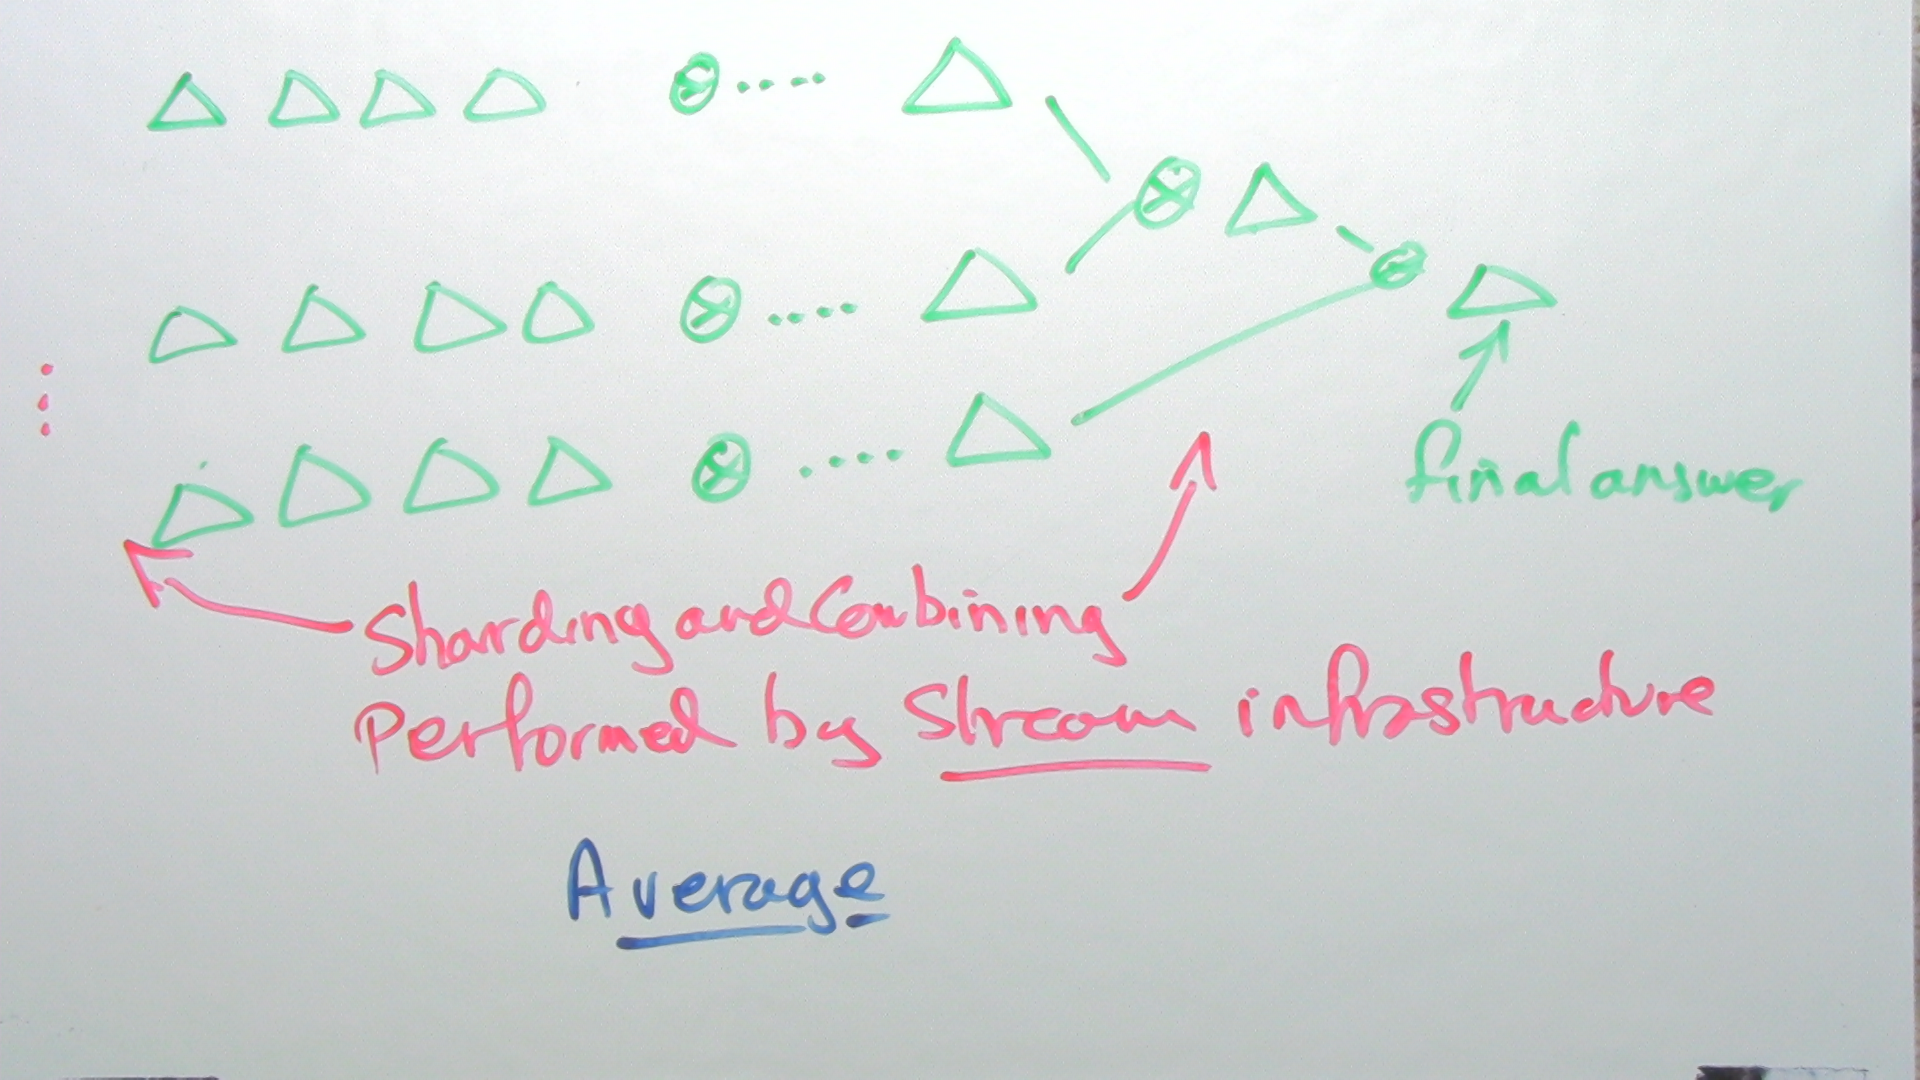 final answer
Sharding and Combining
Performed by Stream infrastructure
Average